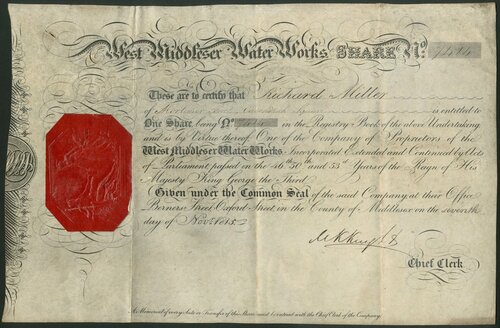 West Middlesex Water Works SHARE No.
These are to certify that Richard Miller
of is entitled to
One Share being No. in the Registry Book of the above Undertaking
and is by Virtue thereof One of the Company of Proprietors of the
West Middlesex Water Works Incorporated Extended and Continued by Acts
of Parliament passed in the 46th 50th and 53d Years of the Reign of His
Majesty King George the Third.
Given under the Common Seal of the said Company at their Office
Berners Street Oxford Street in the County of Middlesex on the seventh
day of Novr
Chief Clerk
A Memorial of every Sale or Transfer of this Share must be entered with the Chief Clerk of the Company.